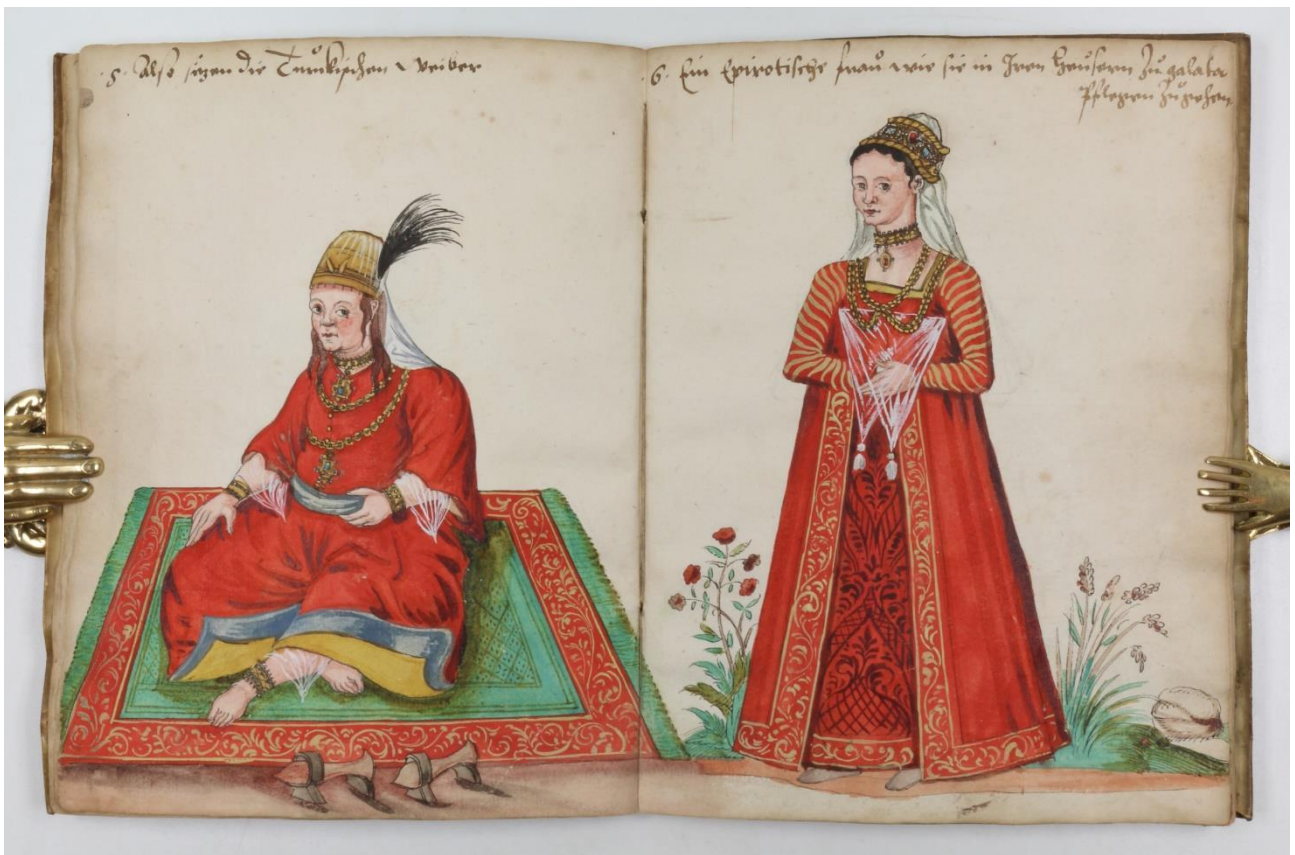 ·5· Also sizen die Türckischen weiber
·6· Ein Epirotische frau wie sie in Iren heusern zu galata
pflegen zu gehen